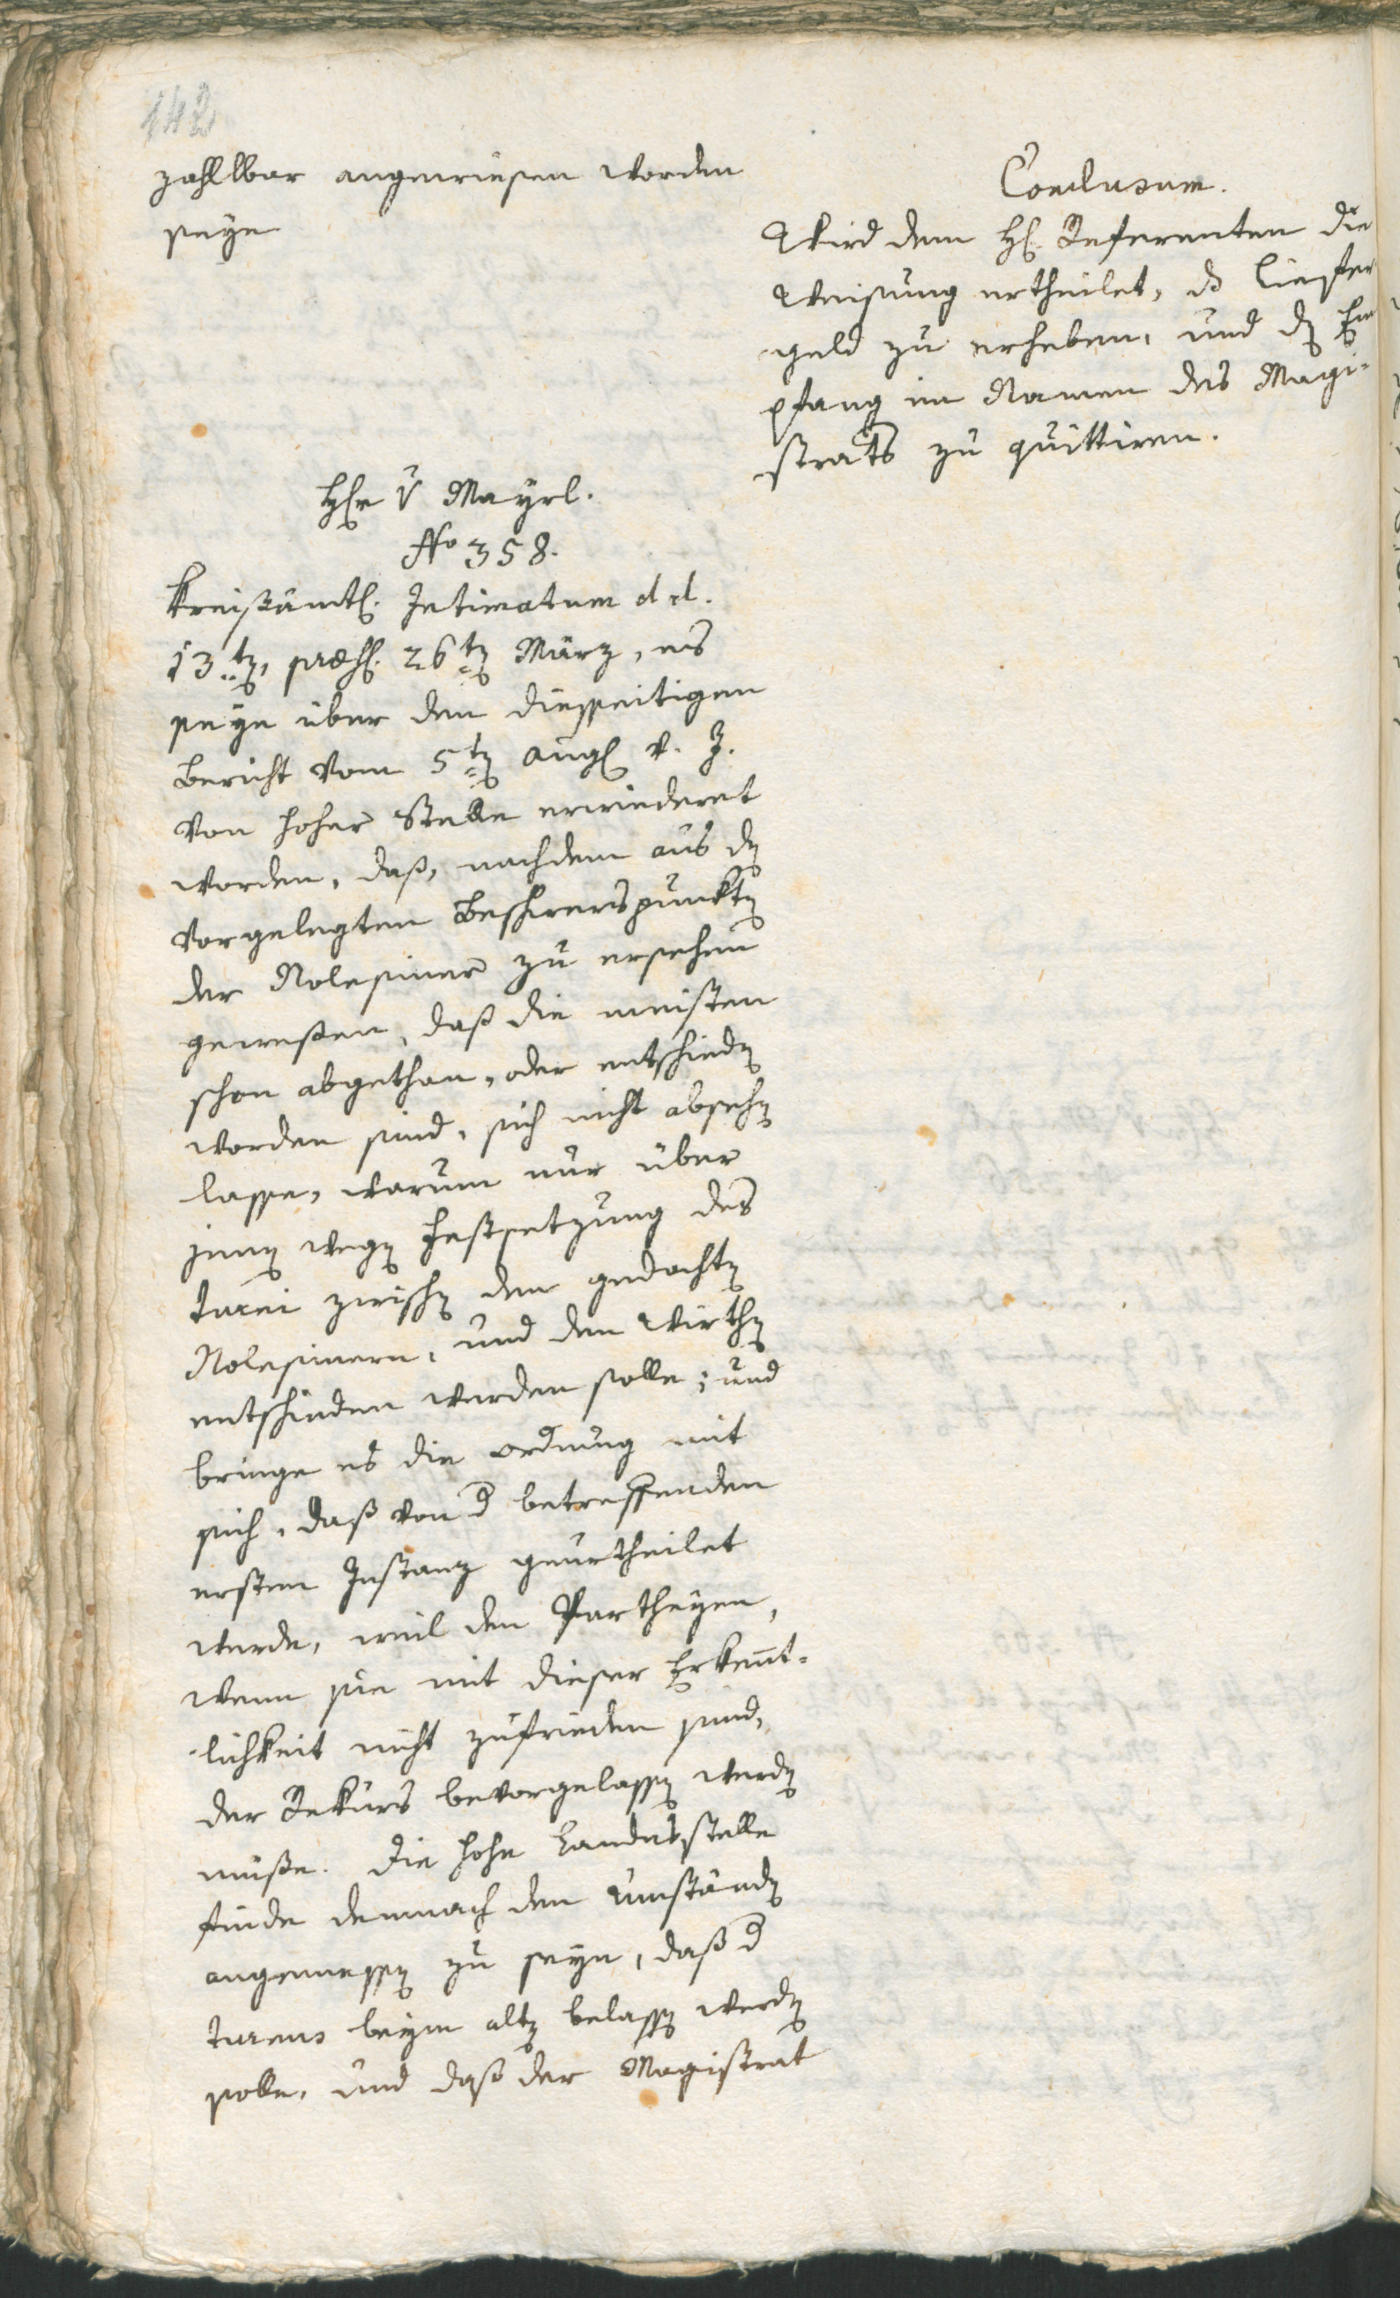 142
zahllbar angewiesen worden
seye
Conclusum.
Wird dem H. Referenten die
Weisung ertheilet, dß Liefer
geld zu erheben, und dn Em
pfang im Namen des Magi-
strats zu quittiren.
Hr v Mayrl.
No 358.
Kreißämtl. Intimatum d. d.
13ten, præs. 26ten März, es
seye über den diesseitigen
Bericht vom 5ten Aug. v. J.
von hoher Stelle erwiederet
worden, daß, nachdem aus dn
vorgelegten Beschwerspunktn
der Rolesiner zu ersehen
gewesen, daß die meisten
schon abgethan, oder entschiedn
worden sind, sich nicht absehn
lasse, warum nur über
jenn wegn Festsetzung des
Turni zwischn den gedachtn
Rolesinern, und den Wirthn
entschieden werden solle; und
bringe es die Ordnung mit
sich, daß von d betreffenden
ersten Instanz geurtheilet
werde, weil den Partheyen,
wenn sie mit dieser Erkennt-
lichkeit nicht zufrieden sind,
der Rekurs bevorgelassn werdn
müße. Die hohe Landesstelle
finde demnach den Umständn
angemessn zu seyn, daß d
Turnus beym altn belassn werdn
solle, und daß der Magistrat